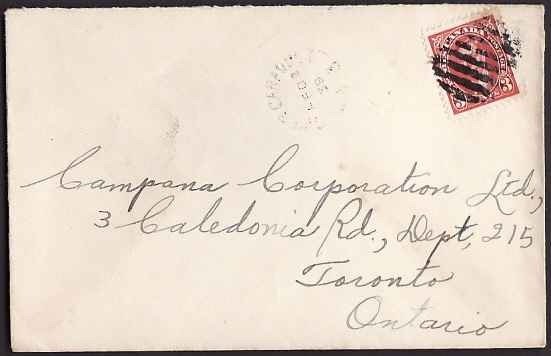 CANADA POSTAGE
3 3
Campana Corporation Ltd.,
3 Caledonia Rd., Dept, 215
Toronto
Ontario